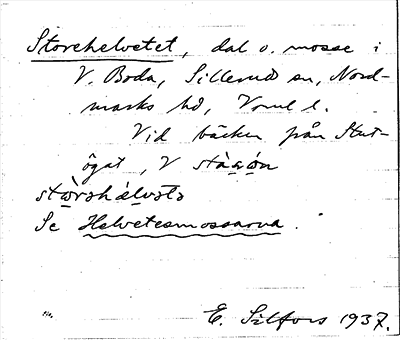 Storehelvetet, dal o. mosse i
V. Boda, Sillerud sn, Nord-
marks hd, Vrml l.
Vid bäcken från Stut-
ögat, V
Se Helvetesmossarna.
E. Silfors 1937.